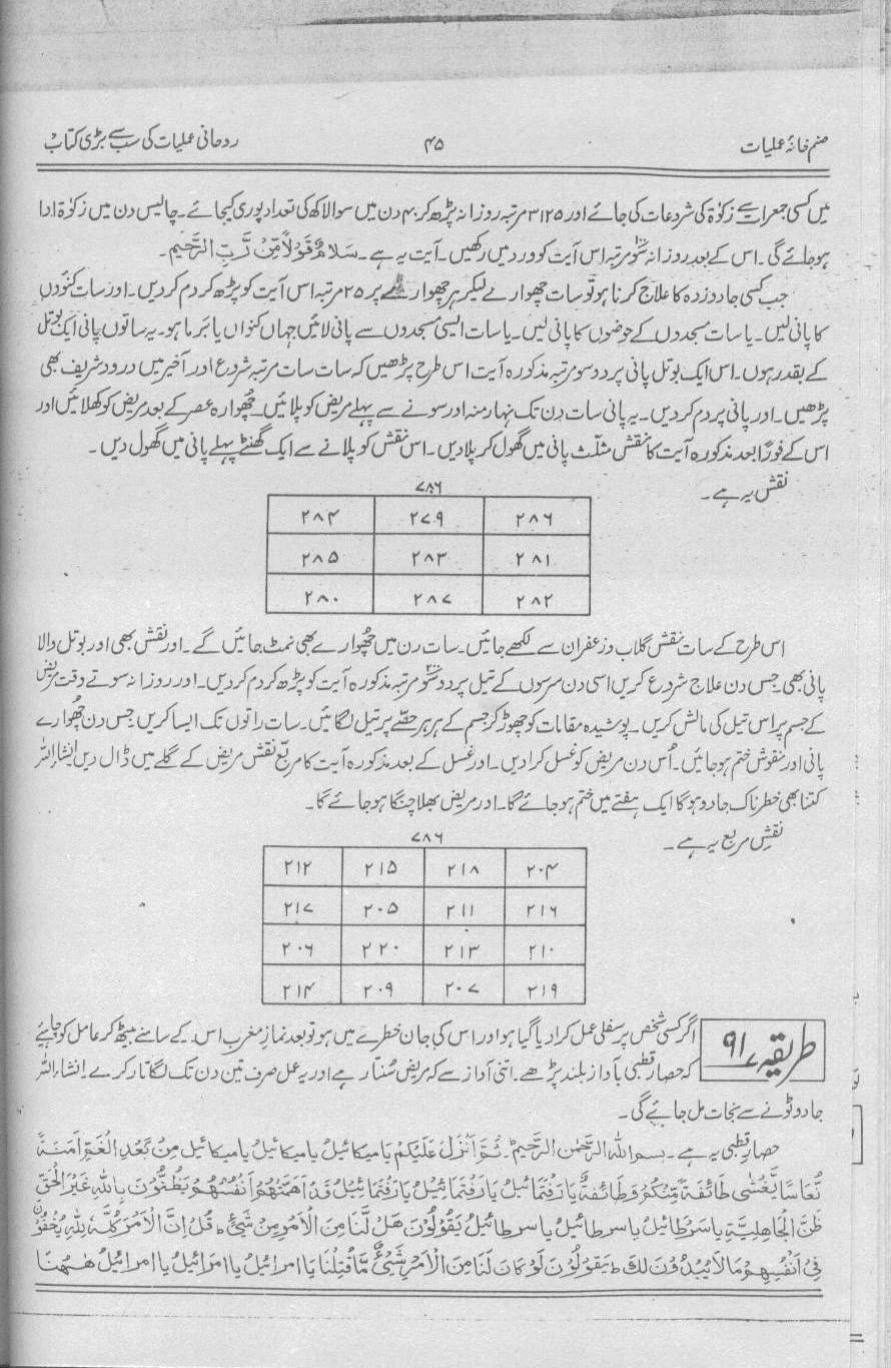 صنم خانۂ عملیات ۴۵ روحانی عملیات کی سب سے بڑی کتاب
میں کسی جمعرات سے زکوٰۃ کی شروعات کی جائے اور ۳۱۲۵ مرتبہ روزانہ پڑھ کر ۴۰ دن میں سوا لاکھ کی تعداد پوری کیجائے۔ چالیس دن میں زکوٰۃ ادا
ہو جائے گی۔ اس کے بعد روزانہ سو مرتبہ اس آیت کو ورد میں رکھیں۔ آیت یہ ہے۔ سَلَامٌ قَوْلًا مِّنْ رَّبٍّ الرَّحِيْمِ۔
جب کسی جادو زدہ کا علاج کرنا ہو تو سات چھوارے لیکر ہر چھوارے پر ۲۵ مرتبہ اس آیت کو پڑھ کر دم کر دیں۔ اور سات کنوؤں
کا پانی لیں۔ یا سات مسجدوں کے حوضوں کا پانی لیں۔ یا سات ایسی مسجدوں سے پانی لائیں جہاں کنواں یا برما ہو۔ یہ ساتوں پانی ایک بوتل
کے بقدر ہوں۔ اس ایک بوتل پانی پر دو سو مرتبہ مذکورہ آیت اس طرح پڑھیں کہ سات سات مرتبہ شروع اور آخیر میں درود شریف بھی
پڑھیں۔ اور پانی پر دم کر دیں۔ یہ پانی سات دن تک نہار منہ اور سونے سے پہلے مریض کو پلائیں۔ چھوارہ عصر کے بعد مریض کو کھلائیں اور
اس کے فوراً بعد مذکورہ آیت کا نقش مثلث پانی میں گھول کر پلا دیں۔ اس نقش کو پلانے سے ایک گھنٹے پہلے پانی میں گھول دیں۔
نقش یہ ہے۔
۷۸۶
۲۸۶ ۲۷۹ ۲۸۴
۲۸۱ ۲۸۳ ۲۸۵
۲۸۲ ۲۸۷ ۲۸۰
اس طرح کے سات نقش گلاب و زعفران سے لکھے جائیں۔ سات دن میں چھوارے بھی نمٹ جائیں گے۔ اور نقش بھی اور بوتل والا
پانی بھی، جس دن علاج شروع کریں اسی دن سرسوں کے تیل پر دو سو مرتبہ مذکورہ آیت کو پڑھ کر دم کر دیں۔ اور روزانہ سوتے وقت مریض
کے جسم پر اس تیل کی مالش کریں۔ پوشیدہ مقامات کو چھوڑ کر جسم کے ہر ہر حصّے پر تیل لگائیں۔ سات راتوں تک ایسا کریں جس دن چھوارے
پانی اور نقوش ختم ہو جائیں۔ اُس دن مریض کو غسل کرا دیں۔ اور غسل کے بعد مذکورہ آیت کا مربع نقش مریض کے گلے میں ڈال دیں انشاء اللہ
کتنا بھی خطرناک جادو ہو گا ایک ہفتے میں ختم ہو جائے گا۔ اور مریض بھلا چنگا ہو جائے گا۔
نقش مربع یہ ہے۔
۷۸۶
۲۰۴ ۲۱۸ ۲۱۵ ۲۱۲
۲۱۶ ۲۱۱ ۲۰۵ ۲۱۷
۲۱۰ ۲۱۳ ۲۲۰ ۲۰۶
۲۱۹ ۲۰۷ ۲۰۹ ۲۱۴
طریقہ ۹۱
اگر کسی شخص پر سفلی عمل کرا دیا گیا ہو اور اس کی جان خطرے میں ہو تو بعد نماز مغرب اس کے سامنے بیٹھ کر عامل کو چاہئے
کہ حصار قطبی بآواز بلند پڑھے۔ اتنی آواز سے کہ مریض سُنتا رہے اور یہ عمل صرف تین دن تک لگاتار کرے۔ انشاء اللہ
جادو ٹونے سے نجات مل جائے گی۔
حصار قطبی یہ ہے۔ بسم اللہ الرحمٰن الرحیم۔ ثُمَّ اَنْزَلَ عَلَيْكُمْ يَا مِيكَائِيلُ يا ميكائيل يا ميكائيل مِنْ بَعْدِ الْغَمِّ اَمَنَةً
نُّعَاسًا يَّغْشٰى طَائِفَةً مِّنْكُمْ وَطَائِفَةٌ يَا رَفْتَمَائِيلُ يَا رَفْتَمَائِيلُ يَا رَفْتَمَائِيلُ قَدْ اَهَمَّتْهُمْ اَنْفُسُهُمْ يَظُنُّوْنَ بِاللّٰهِ غَيْرَ الْحَقِّ
ظَنَّ الْجَاهِلِيَّةِ يا سَرْطَائِيلُ يا سرطائيلُ يا سرطائيلُ يَقُوْلُوْنَ هَلْ لَّنَا مِنَ الْاَمْرِ مِنْ شَيْءٍ ط قُلْ اِنَّ الْاَمْرَ كُلَّهٗ لِلّٰهِ يُخْفُوْنَ
فِيْ اَنْفُسِهِمْ مَا لَا يُبْدُوْنَ لَكَ ط يَقُوْلُوْنَ لَوْ كَانَ لَنَا مِنَ الْاَمْرِ شَيْءٌ مَّا قُتِلْنَا يَا امرائيلُ يا امرائيلُ يا امرائيلُ هٰهُنَا